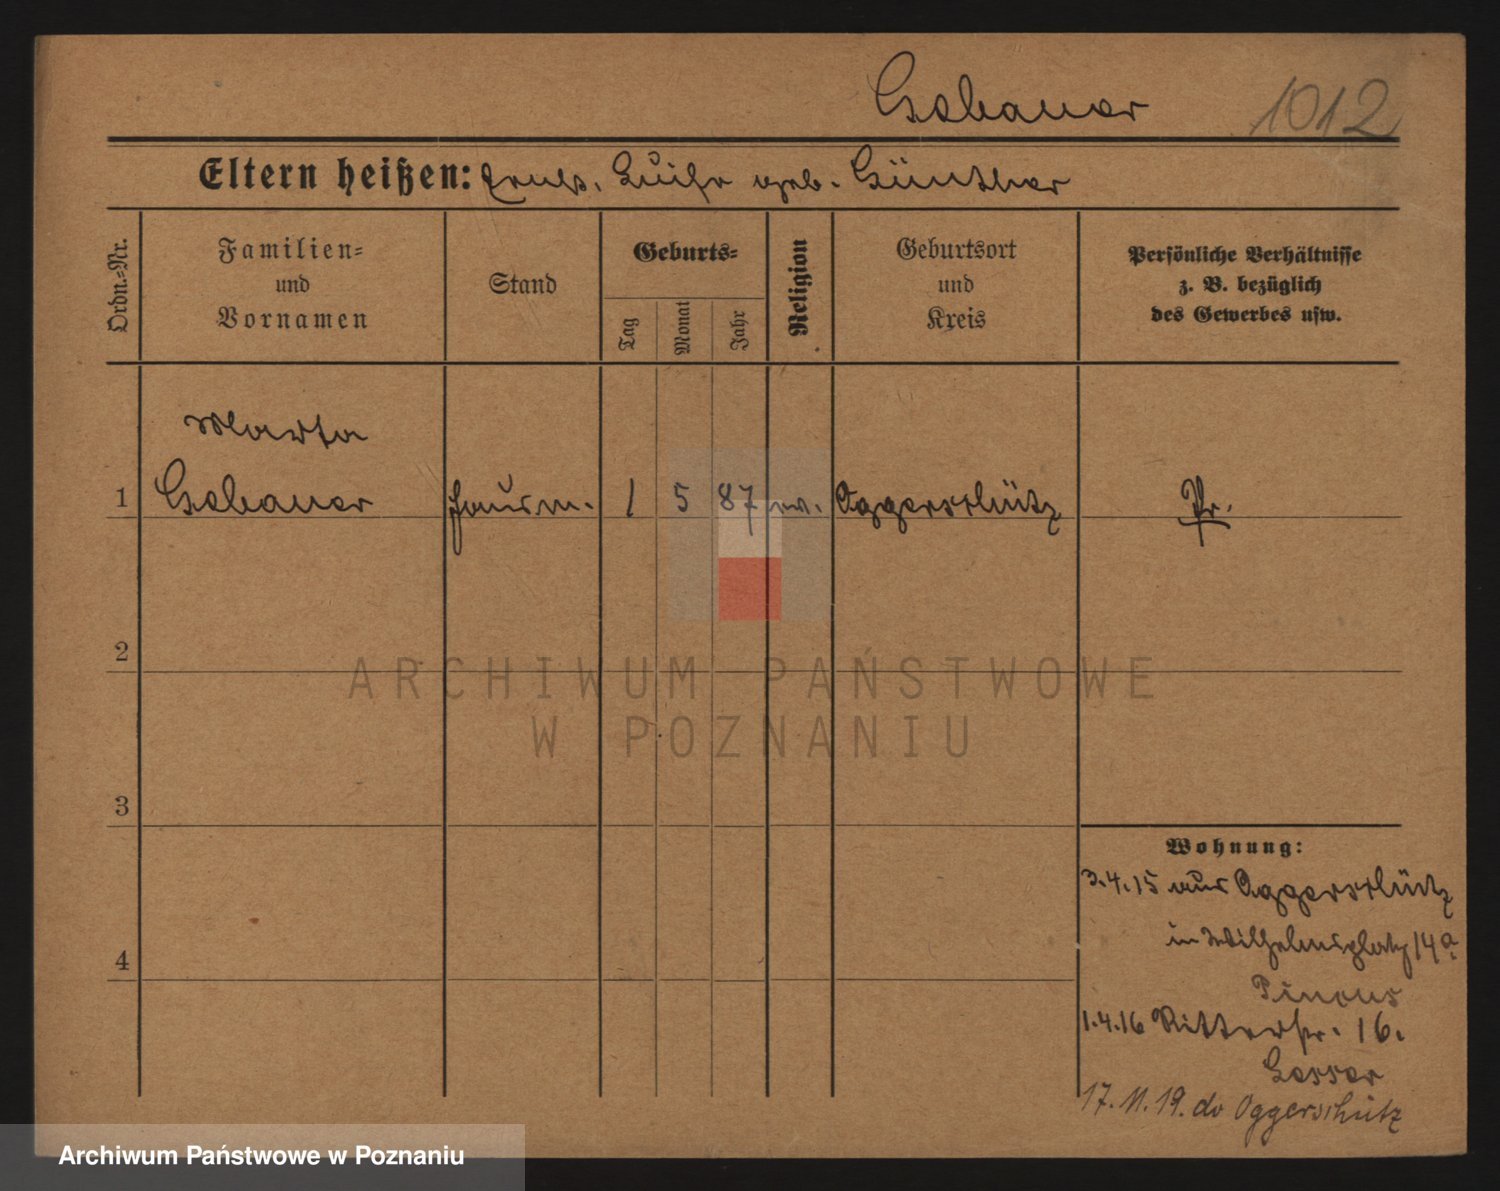 Gebauer 1012
Eltern heißen: Luise geb. Günther
Ordn.-Nr.
Familien-
und
Vornamen
Stand
Geburts-
Tag
Monat
Jahr
Religion
Geburtsort
und
Kreis
Persönliche Verhältnisse
z. B. bezüglich
des Gewerbes usw.
Marta
1 Gebauer 1 5 87 ev. Oggerschütz Pr.
2
ARCHIWUM PAŃSTWOWE
W POZNANIU
3
Wohnung:
3.4.15 aus Oggerschütz
in Wilhelmsplatz 14a
Pincus
4
1.4.16 Ritterstr. 16.
Lesser
17.11.19. do Oggerschütz
Archiwum Państwowe w Poznaniu